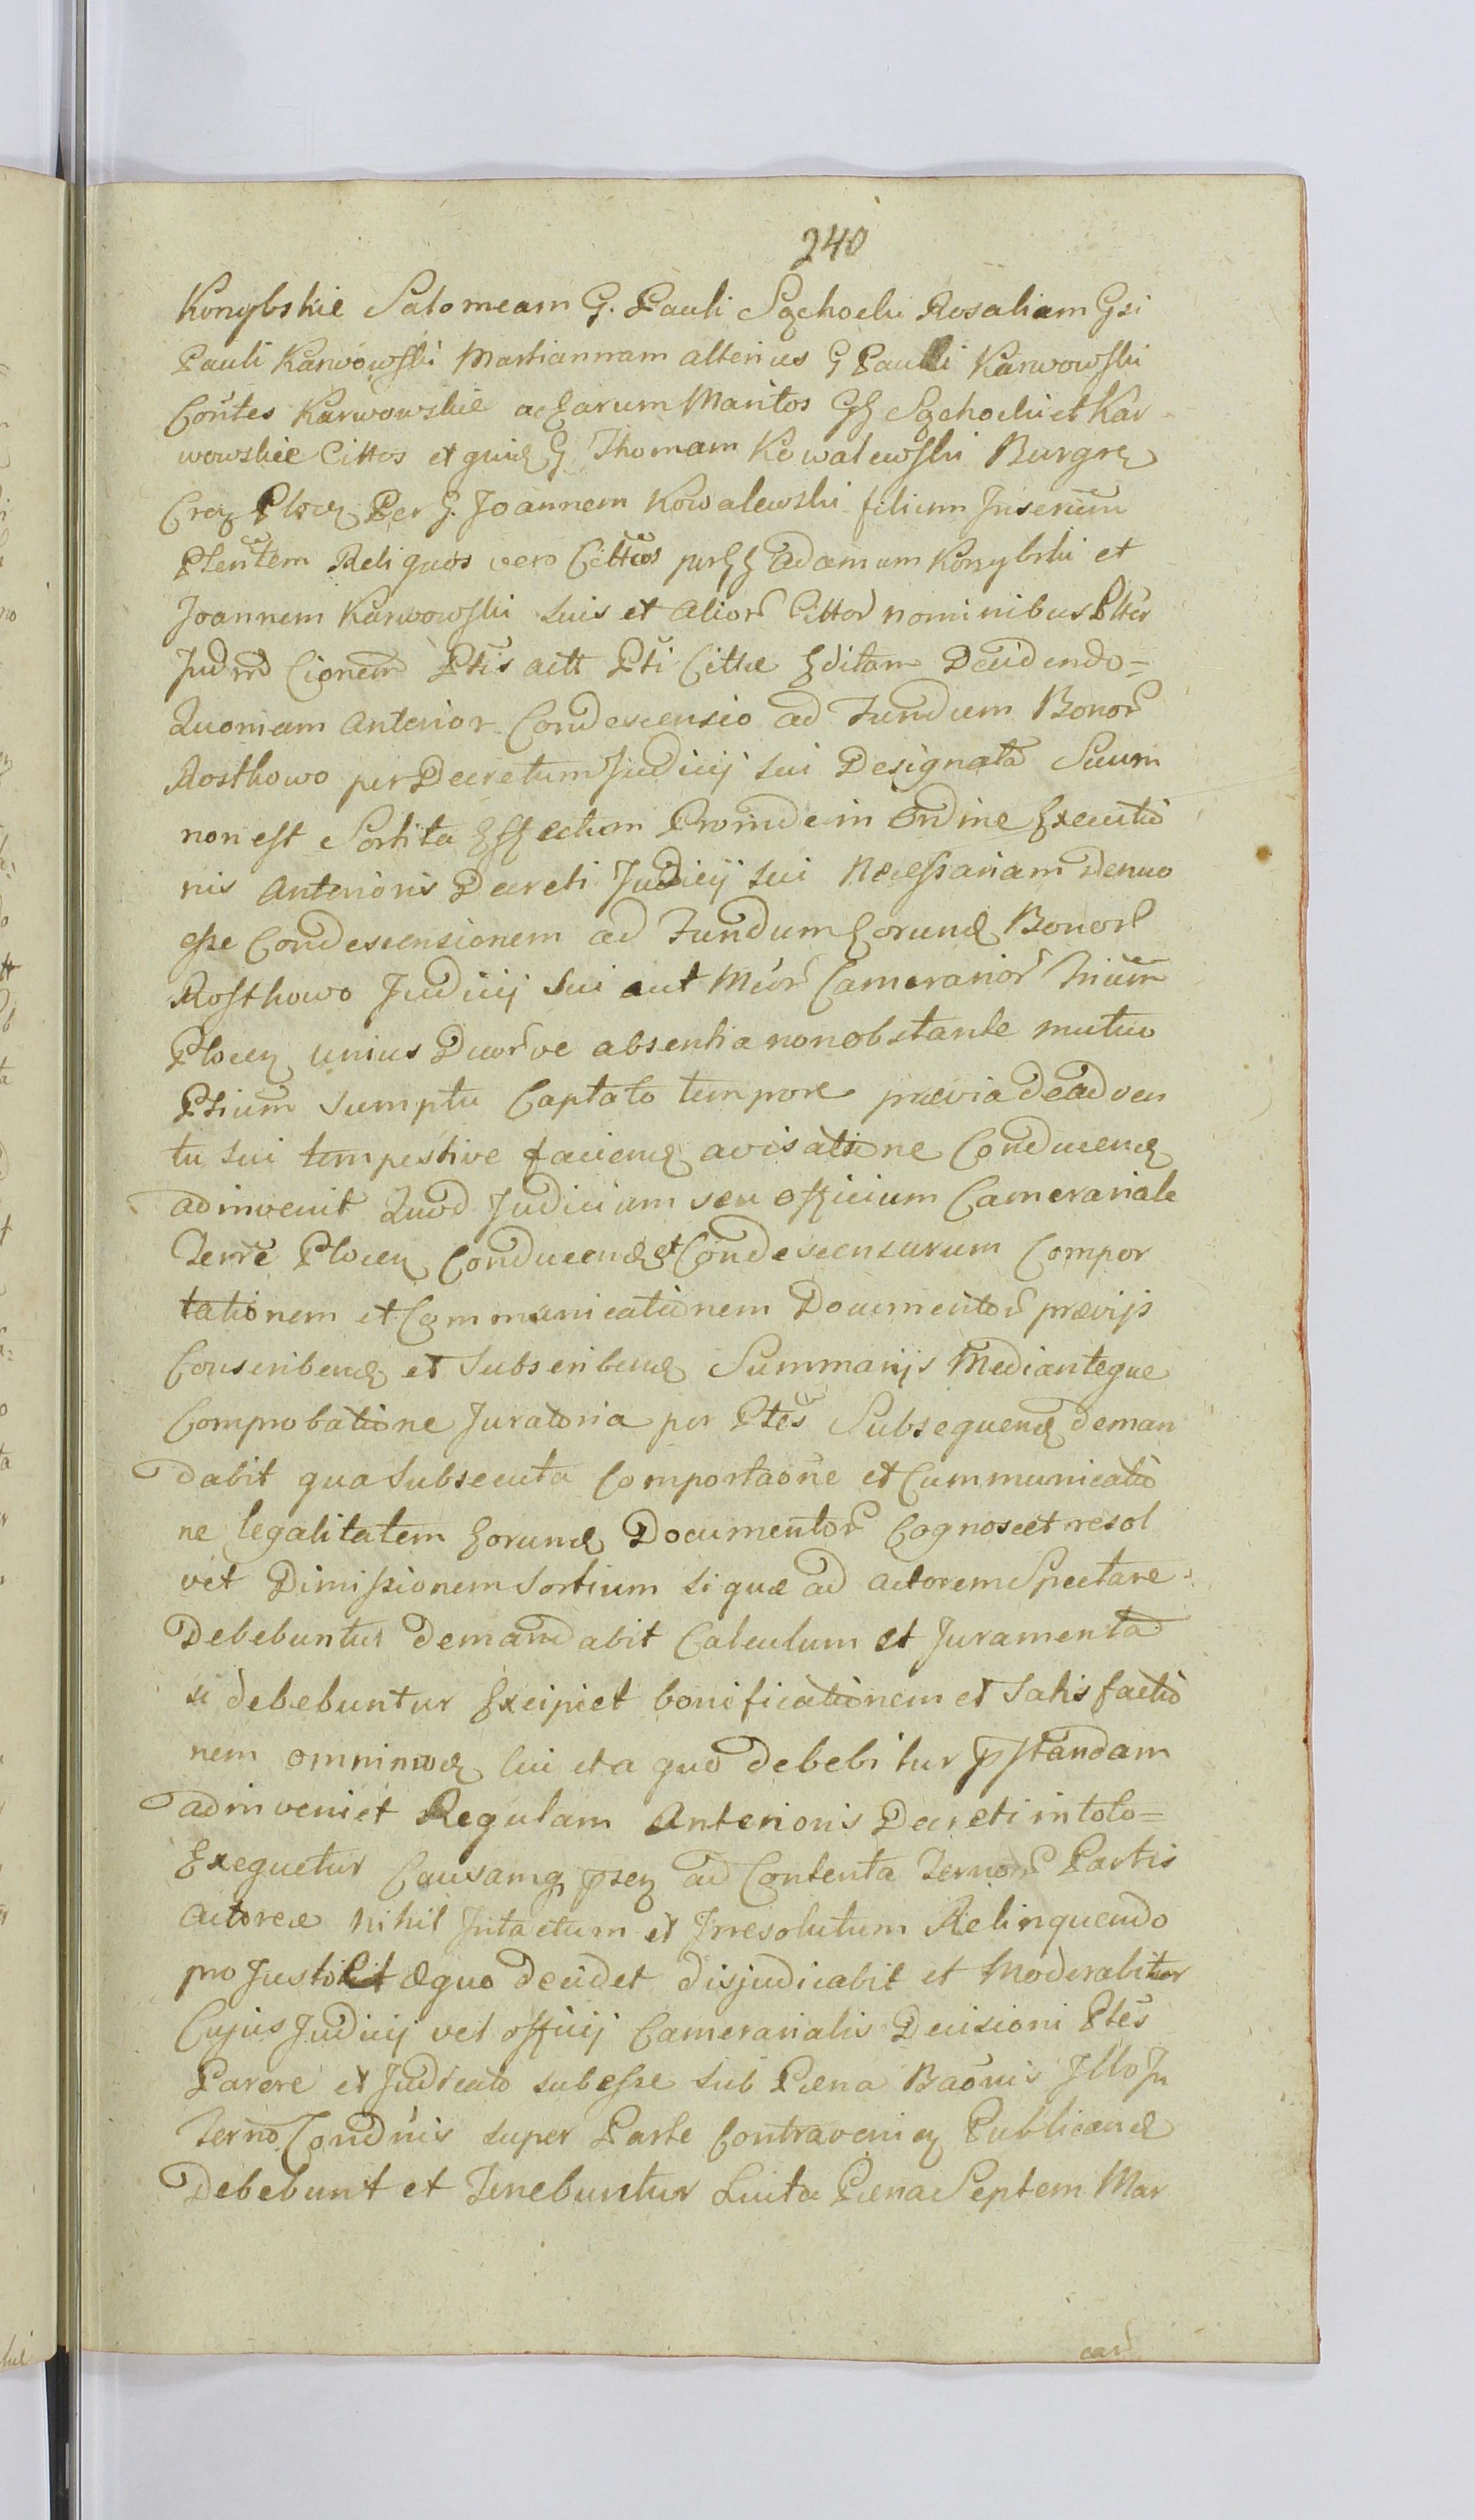 240
Konybskie Salomeam G. Pauli Sąchocki Rosaliam Gsi
Pauli Karwowski Martiannam alterius G Pauli Karwowski
Cońtes Karwowskie ac Earum Maritos GG Sąchocki et Kar
wowskie Cittos et quid G Thomam Kowalewski Burgr
Plocen Per G. Joannem Kowalewski filium
Reliquos vero Cittos per GG Adamum Konybski et
Joannem Karwowski suis et alior Cittor nominibus
Citte Editam Decidendo=
Quoniam Anterior Condescensio ad Fundum Bonor
Rosthowo per Decretum Judicij sui Designata Suum
non est Sortita Effectum Proinde in Ordine Executio
nis Anterioris Decreti Judicij sui Necessariam Denuo
esse Condescensionem ad Fundum Eorund Bonor
Rosthowo Judicij Sui aut Camerarior
Plocen unius Duorve absentia nonobstante mutuo
Ptium sumptu Captato tempore prævia de adven
tu sui tempestive faciend avisatione Conducend
adinvenit Quod Judicium seu officium Camerariale
Terre Plocen Conducend et Condescensurum Compor
tationem et Communicationem Documentor prævijs
Conscribend et Subscribend Summarijs Mediante que
Comprobatione Juratoria per Ptes Subsequend deman
dabit qua Subsecuta Comportaone et Cummunicatio
ne legalitatem Eorund Documentor Cognoscet resol
vet Dimissionem Sortium si quæ ad actorem Spectare
Debebuntur demandabit Calculum et Juramenta
si debebuntur Excipiet bonificationem et Satisfactio
nem omnimod cui et a quo debebitur pstandam
adinveniet Regulam Anterioris Decreti in toto=
Exequetur Causamq psen ad Contenta Termor Partis
actoreæ nihil Intactum et Irresolutum Relinquendo
pro Justo et æquo decidet disjudicabit et Moderabitur
Cujus Judicij vel officij Camerarialis Decisioni Ptes
Parere et Judicato subesse sub Pæna Baonis Illo In
Termo Condnis super Parte Contravenien Publicand
Debebunt et Tenebuntur Luita Pæna Septem Mar
car